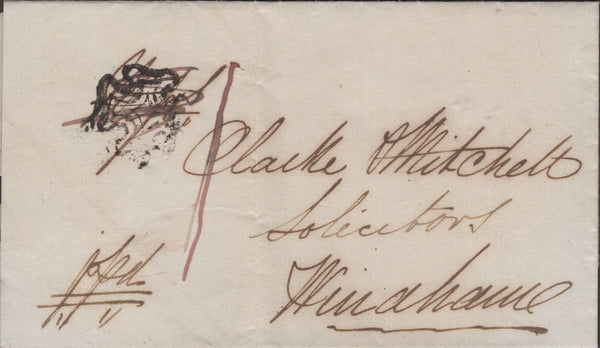 Clarke & Mitchell
Solicitors
Windhame
pd
1